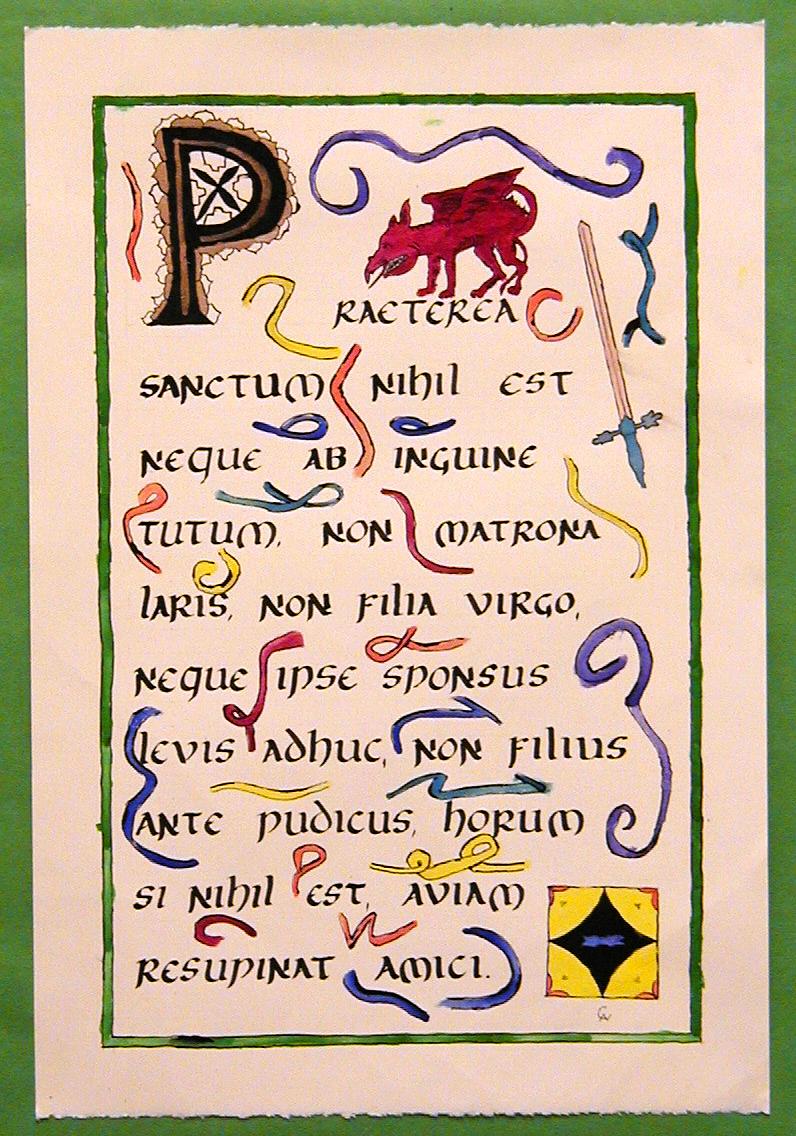 PRAETEREA
SANCTUM NIHIL EST
NEQUE AB INGUINE
TUTUM, NON MATRONA
LARIS, NON FILIA VIRGO,
NEQUE IPSE SPONSUS
LEVIS ADHUC, NON FILIUS
ANTE PUDICUS, HORUM
SI NIHIL EST, AVIAM
RESUPINAT AMICI.